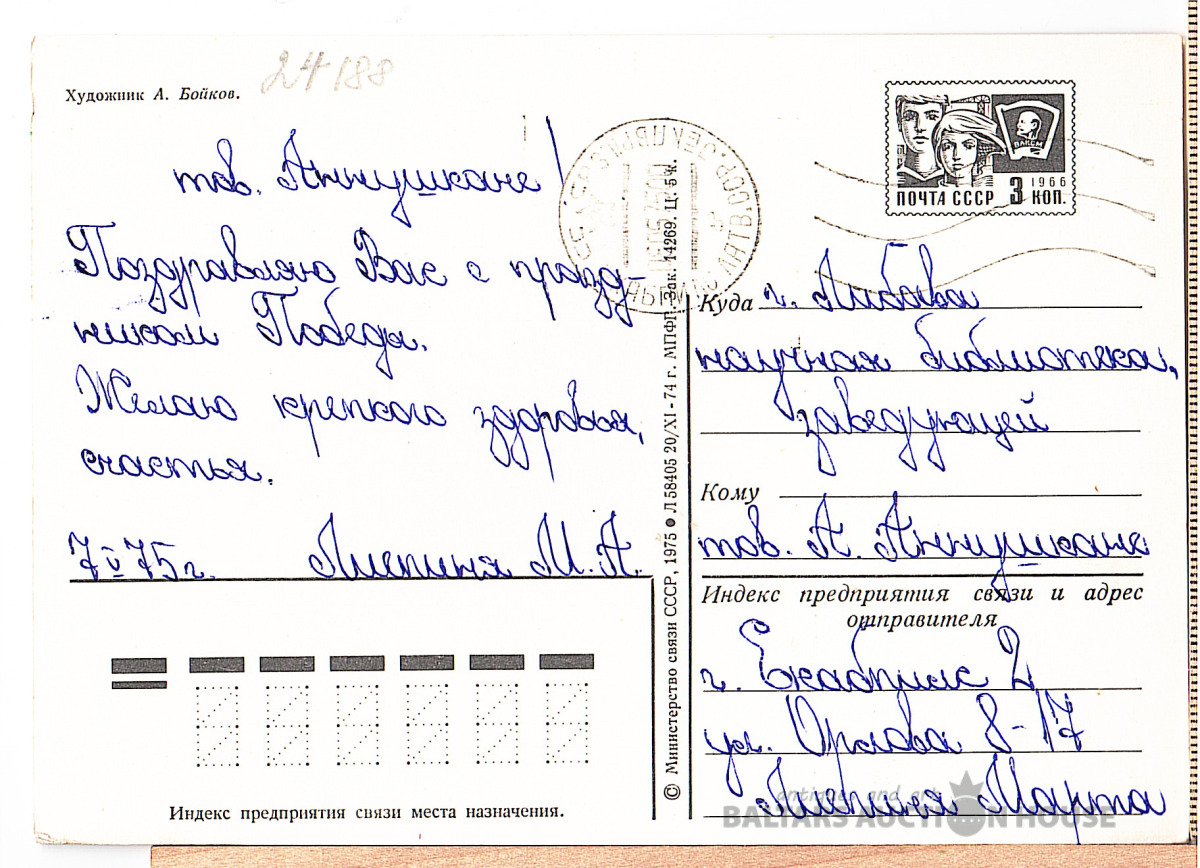 Художник А. Бойков.
24188
тов. Аннушкане!
Поздравляю Вас с празд-
ником Победы.
Желаю крепкого здоровья,
счастья.
7 V 75 г. Лиепиня М. А.
Индекс предприятия связи места назначения.
© Министерство связи СССР, 1975 ● Л 58405 20/XI - 74 г. МПФГ. Зак. 14269. Ц. 5 к.
ВЛКСМ
ПОЧТА СССР 3 КОП.
1966
Куда г. Либава
научная библиотека,
заведующей
Кому
тов. А. Аннушкане
Индекс предприятия связи и адрес
отправителя
г. Екабпилс 2
ул. Орлова 8-17
Лиепиня Марта
antiques and art
BALTARS AUCTION HOUSE